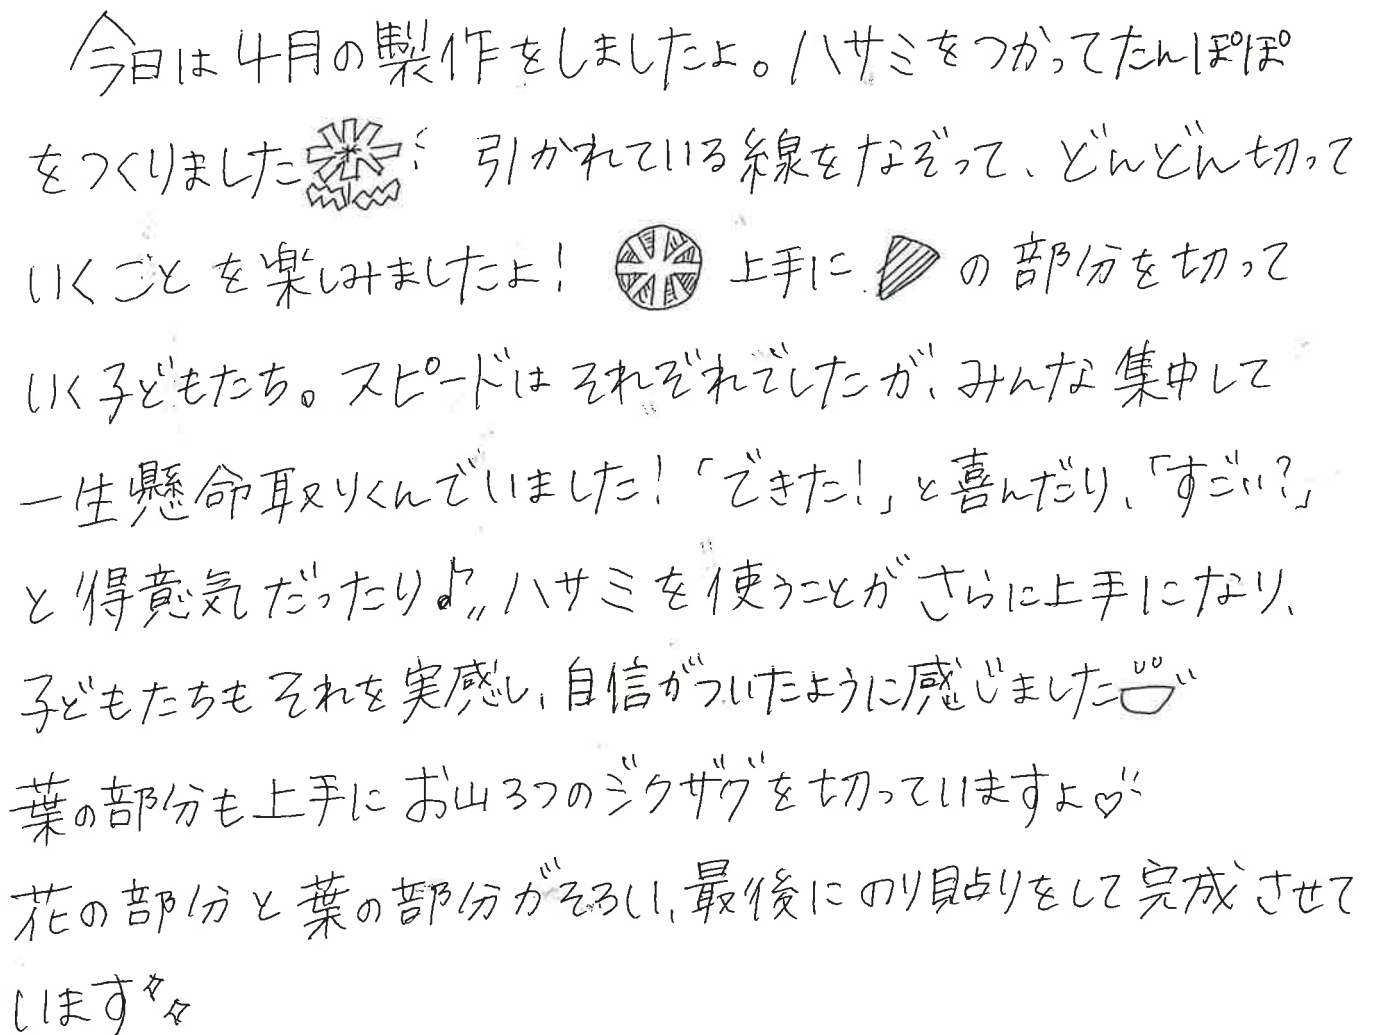 今日は4月の製作をしましたよ。ハサミをつかってたんぽぽ
をつくりました 引かれている線をなぞって、どんどん切って
いくごとを楽しみましたよ! 上手に の部分を切って
いく子どもたち。スピードはそれぞれでしたが、みんな集中して
一生懸命取りくんでいました!「できた!」と喜んだり、「すごい?」
と得意気だったり♪ハサミを使うことがさらに上手になり、
子どもたちもそれを実感し、自信がついたように感じました
葉の部分も上手にお山3つのジグザグを切っていますよ♡
花の部分と葉の部分がそろい、最後にのり貼りをして完成させて
います